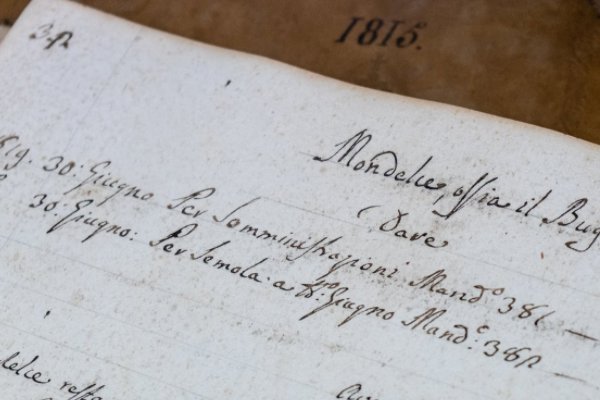 1815.
3.
Mondelce, ossia il Bug
Dare
819. 30: Giugno Per Somministrazioni Mand.º 381 —
30: Giugno: Per Semola a Giugno Mand.º: 382 —
delce resta